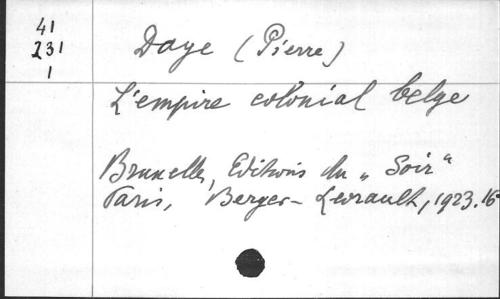 41
231
1
Daye (Pierre)
L'empire colonial belge
Bruxelles, Editions du „Soir“
Paris, Berger-Levrault, 1923. 16°